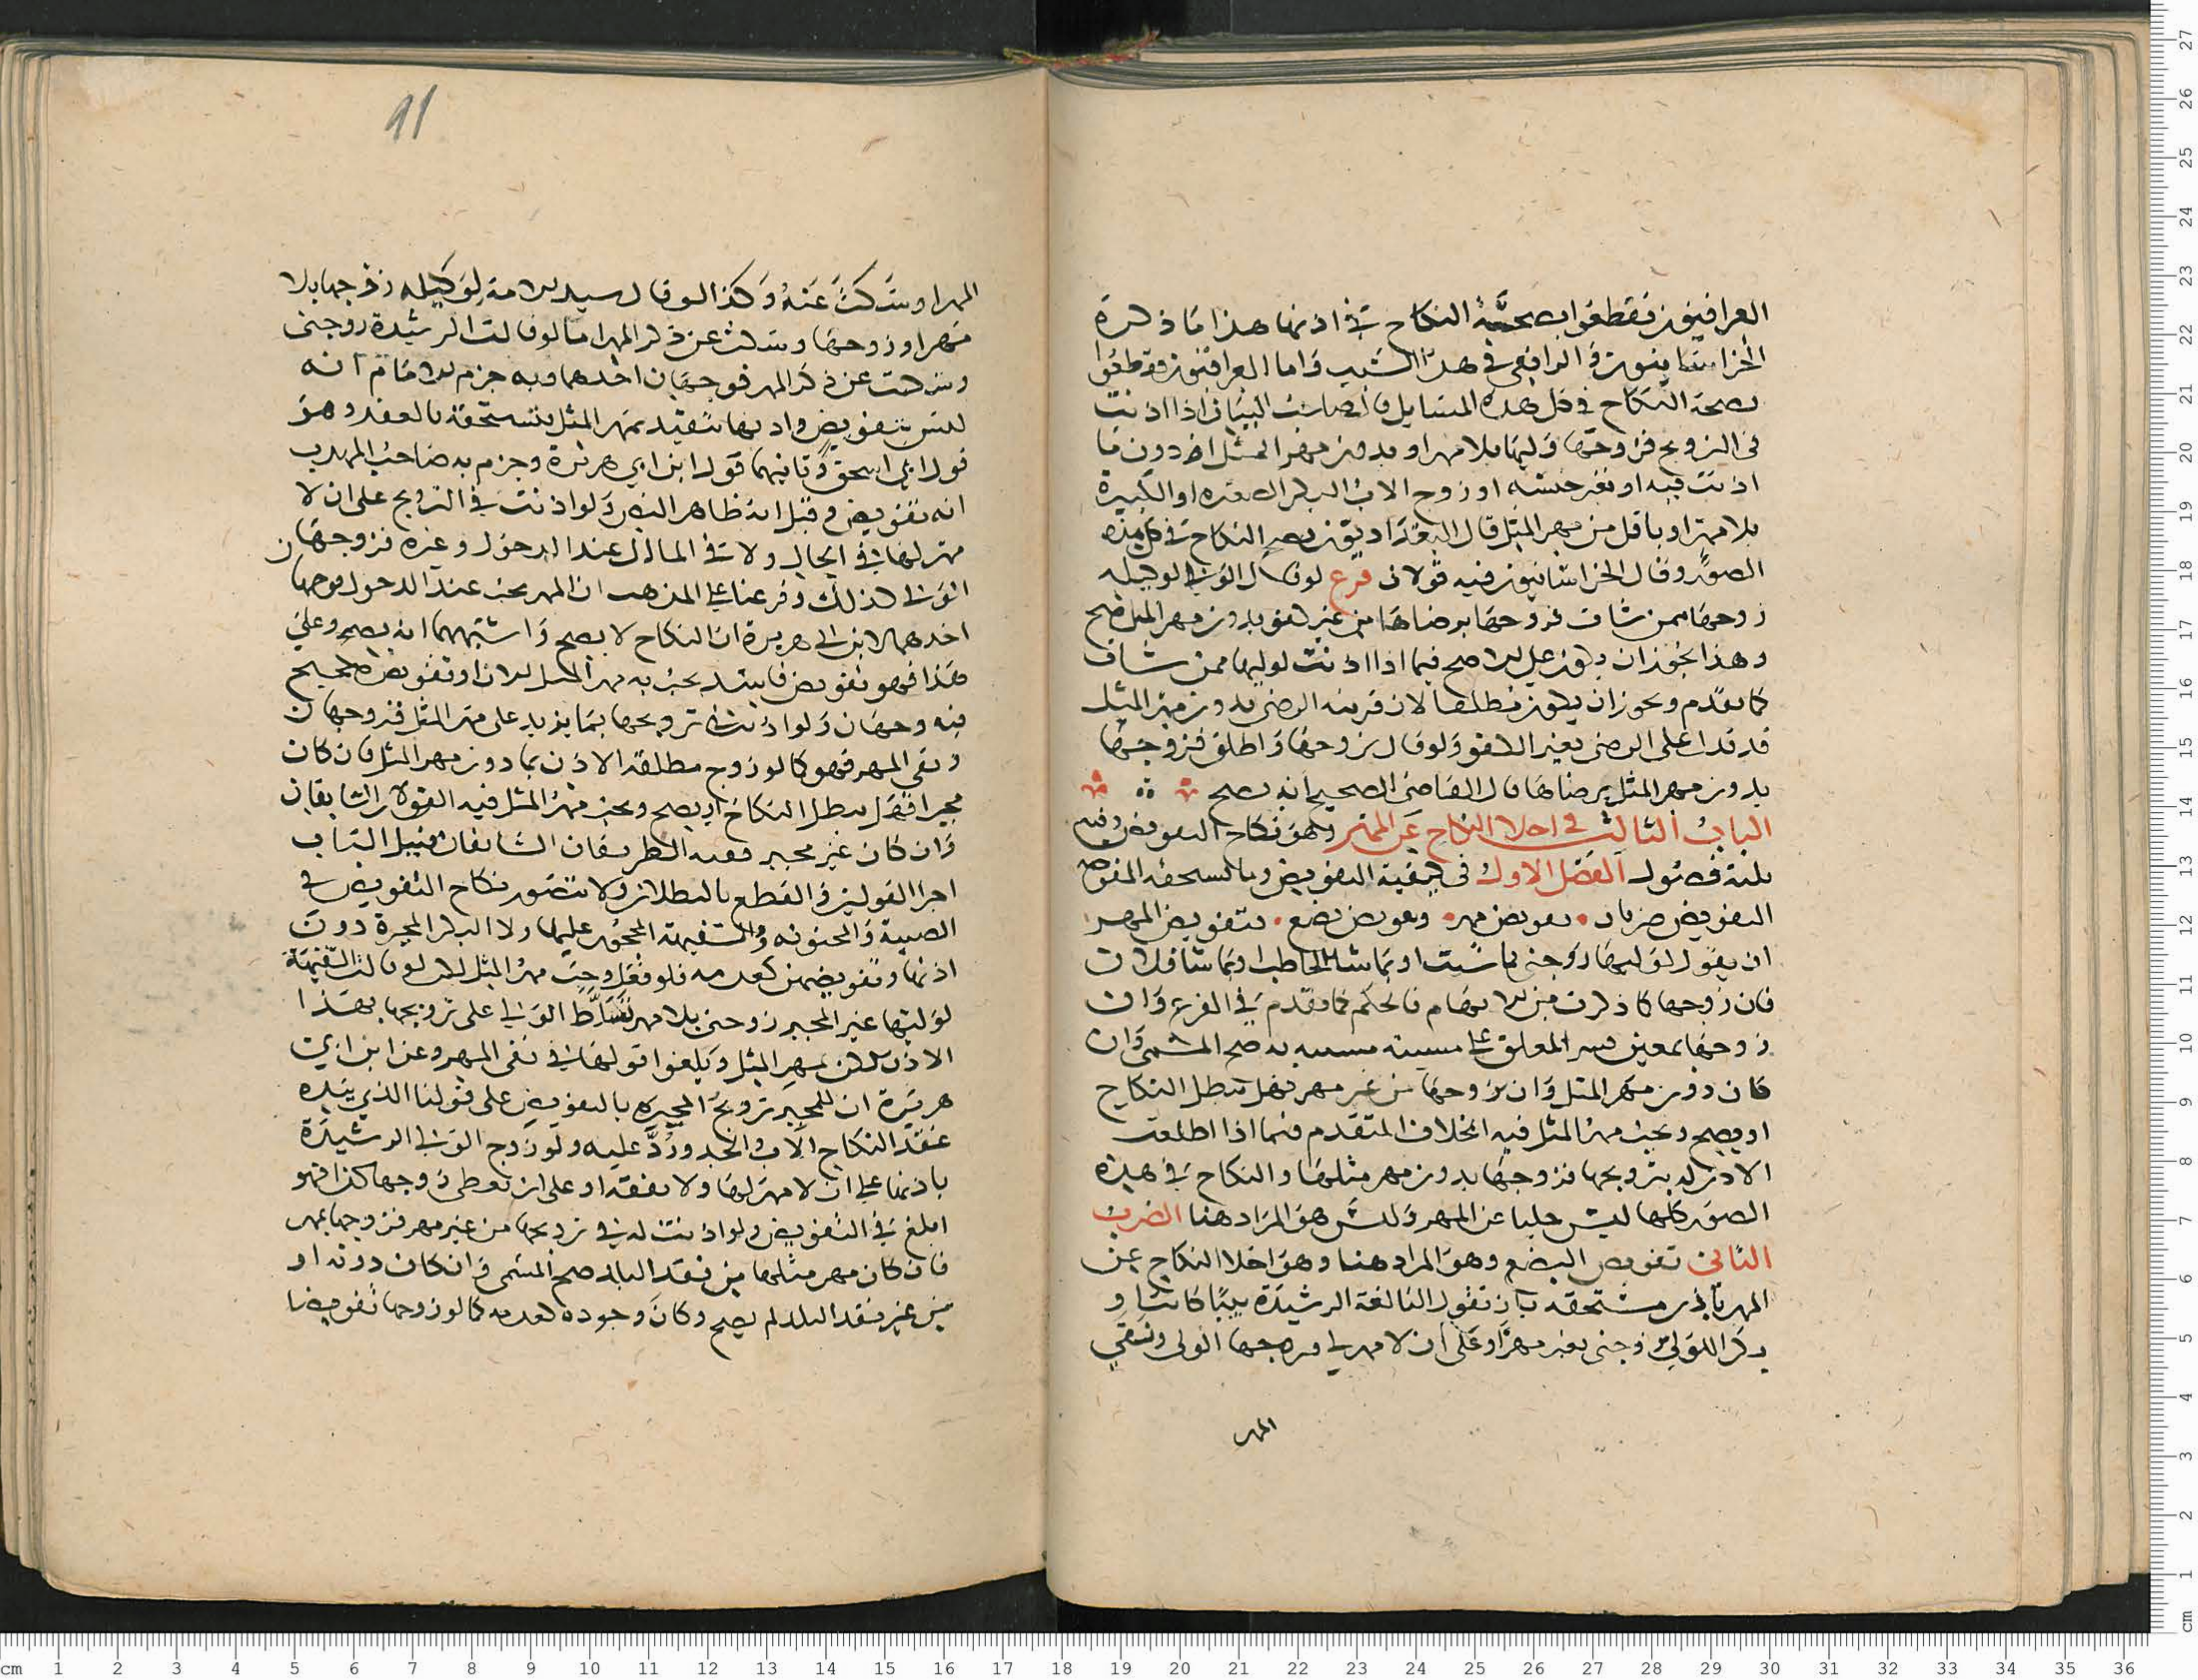 العراقيون فقطعوا بصحة النكاح في اذنها هذا ما ذكره
الخراسانيون والرافعي في هذا السبب واما العراقيون فقطعوا
بصحة النكاح في كل هذه المسايل قال صاحب البيان اذا اذنت
في التزويج فزوجها وليها بلا مهر او بدون مهر المثل او دون ما
اذنت فيه او بغير جنسه او زوج الاب البكر الصغيره او الكبيرة
بلا مهر او باقل من مهر المثل قال البغداديون يصح النكاح في كل هذه
الصور وقال الخراسانيون فيه قولان فرع لو قال الولي لوكيله
زوجها ممن شات فزوجها برضاها من غير كفو بدون مهر المثل صح
وهذا يجوز ان يكون على الاصح فيما اذا اذنت لوليها ممن شات
كما تقدم ويجوز ان يكون مطلقا لان قرينه الرضى بدون مهر المثل
قد تدل على الرضى بغير الكفو ولو قال زوجها واطلق فزوجها
بدون مهر المثل برضاها قال القاضي الصحيح انه يصح
الباب الثالث في اخلا النكاح عن المهر وهو نكاح التفويض وفيه
ثلثة فصول الفصل الاول في كيفية التفويض وما تستحقه المفوضة
التفويض ضربان تفويض مهر وتفويض بضع فتفويض المهر
ان يقول لوليها زوجني بما شيت او بما شا الخاطب او بما شا فلان
فان زوجها كما ذكرت من الابهام فالحكم كما تقدم في الفرع وان
زوجها بمعين المعلق على به صح المسمى وان
كان دون مهر المثل وان زوجها من غير مهر فهل يبطل النكاح
او يصح ويجب مهر المثل فيه الخلاف المتقدم فيما اذا اطلقت
الاذن له بتزويجها فزوجها بدون مهر مثلها والنكاح في هذه
الصور كلها ليس خليا عن المهر وليس هو المراد هنا الضرب
الثاني تفويض البضع وهو المراد هنا وهو اخلا النكاح عن
المهر باذن مستحقه بان تقول البالغة الرشيدة ثيبا كانت او
بكرا للولي زوجني بغير مهر او على ان لا مهر لي فيزوجها الولي وينفي
المهر
11
المهر او سكت عنه وكذا لو قال سيد الامة لوكيله زوجها بلا
مهر او زوجها وسكت عن ذكر المهر اما لو قالت الرشيدة زوجني
وسكتت عن ذكر المهر فوجهان احدهما وبه جزم الامام انه
ليس بتفويض واذنها يتقيد بمهر المثل فتستحقه بالعقد وهو
قول ابي اسحق وثانيهما قول ابن ابي هريرة وجزم به صاحب المهذب
انه تفويض وقيل انه ظاهر النص ولو اذنت في التزويج على ان لا
مهر لها في الحال ولا في المال عند الدخول وغيره فزوجها
الولي كذلك وفرعنا على المذهب ان المهر يجب عند الدخول فوجهان
احدهما لابن ابي هريرة ان النكاح لا يصح واشبههما انه يصح وعلى
هذا فهو تفويض فاسد يجب به مهر المثل الان او تفويض صحيح
فيه وجهان ولو اذنت في تزويجها بما يزيد على مهر المثل فزوجها
ونفى المهر فهو كما لو زوج مطلقة الاذن بما دون مهر المثل فان كان
مجبرا فهل يبطل النكاح او يصح ويجب مهر المثل فيه القولان السابقان
وان كان غير مجبر ففيه الطريقان السابقان قبيل الباب
اجرا القولين والقطع بالبطلان ولا يتصور نكاح التفويض في
الصبية والمجنونه والسفيهة المحجور عليها ولا البكر المجبرة دون
اذنها وتفويضهن كعدمه فلو فعل وجب مهر المثل لكن لو قالت السفيهة
لوليها غير المجبر زوجني بلا مهر تسلط الولي على تزويجها بهذا
الاذن لكن بمهر المثل ويلغوا قولها في نفي المهر وعن ابن ابي
هريرة ان للمجبر تزويج المجبره بالتفويض على قولنا الذي بيده
عقد النكاح الاب والجد ورد عليه ولو زوج الولي الرشيدة
باذنها على ان لا مهر لها ولا نفقة او على ان تعطي زوجها كذا فهو
ابلغ في التفويض ولو اذنت له في تزويجها من غير مهر فزوجها بمهر
فان كان مهر مثلها من نقد البلد صح المسمى وان كان دونه او
من غير نقد البلد لم يصح وكان وجوده كعدمه كما لو زوجها تفويضا